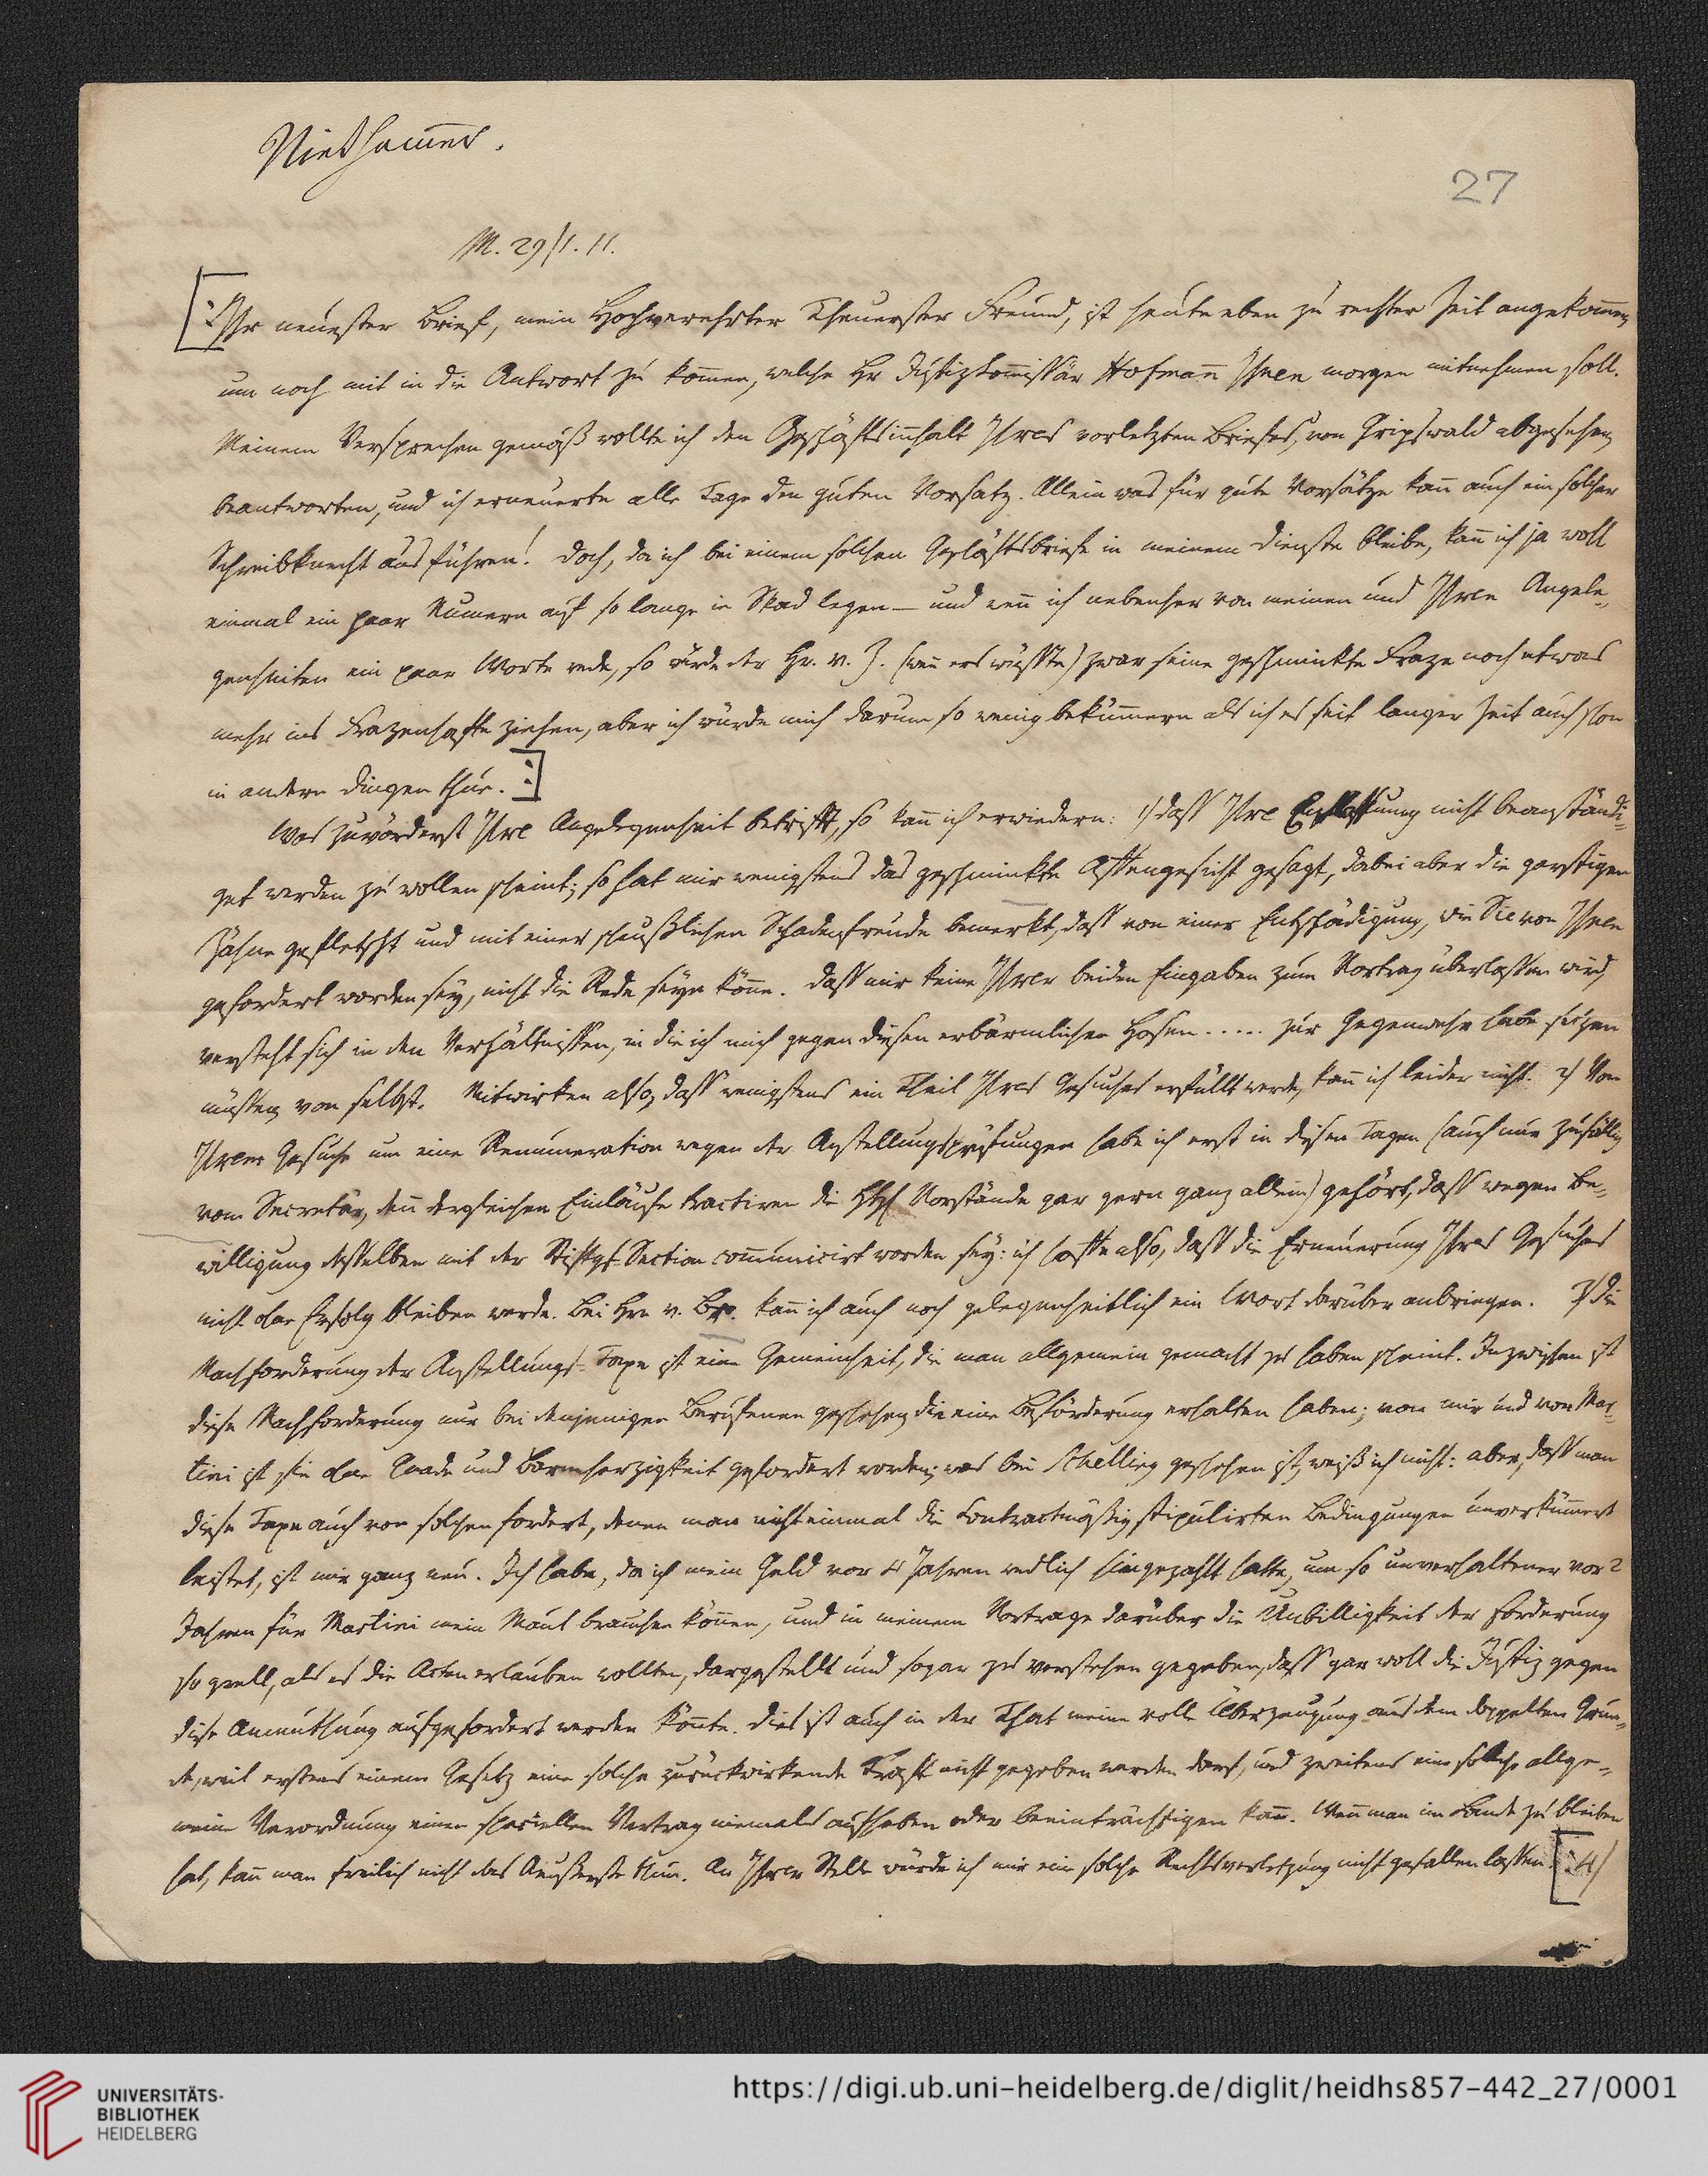 Niethammer.
27
M. 29/1. 11.
[: Ihr neuester Brief, mein Hochverehrter Theuerster Freund, ist heute eben zu rechter Zeit angekom̄en,
um noch mit in die Antwort zu kom̄en, welche Hr Justizkom̄issär Hofman̄ Ihnen morgen mitnehmen soll.
Meinem Versprechen gemäß wollte ich den Geschäftsinhalt Ihres vorletzten Briefes, von Gripswald abgesehen,
beantworten, und ich erneuerte alle Tage den guten Vorsatz. Allein was für gute Vorsätze kan̄ auch ein solcher
Schreibknecht ausführen! Doch, da ich bei einem solchen Geschäftsbriefe in meinem Dienste bleibe, kan̄ ich ja wohl
einmal ein paar Numern auf so lange in Skad legen — und wen̄ ich nebenher von meinen und Ihren Angele-
genheiten ein paar Worte rede, so würde der Hr. v. Z. (wen̄ ers wüsste) zwar seine geschminkte Fraze noch etwas
mehr ins Frazenhafte ziehen, aber ich würde mich darum so wenig bekümmern als ich es seit langer Zeit auch schon
in andern Dingen thue. :]
Was zuvörderst Ihre Angelegenheit betrifft, so kan̄ ich erwiedern: 1) dass Ihre Entlassung nicht beanständi-
get werden zu wollen scheint; so hat mir wenigstens das geschminkte Affengesicht gesagt, dabei aber die garstigen
Zähne gefletscht und mit einer scheußlichen Schadenfreude bemerkt, dass von einer Entschädigung, die Sie von Ihnen
gefordert worden sey, nicht die Rede seyn kön̄e. Dass mir keine Ihrer beiden Eingaben zum Vortrag überlassen wird,
versteht sich in den Verhältnissen, in die ich mich gegen diesen erbärmlichen Hosen..... zur Gegenwehr habe setzen
müssen, von selbst. Mitwirken also, dass wenigstens ein Theil Ihres Gesuches erfüllt werde, kan̄ ich leider nicht. 2) Von
Ihrem Gesuche um eine Remuneration wegen der Anstellungsprüfungen habe ich erst in diesen Tagen (auch nur zufällig
vom Secretär, den̄ dergleichen Einläufe tractiren die HHh Vorstände gar gern ganz allein) gehört, dass wegen Be-
willigung desselben mit der Stiftgs-Section com̄unicirt worden sey: ich hoffe also, dass die Erneuerung Ihres Gesuches
nicht ohne Erfolg bleiben werde. Bei Hrn v. Br. kan̄ ich auch noch gelegenheitlich ein Wort darüber anbringen. 3) Die
Nachforderung der Anstellungs-Taxe ist eine Gemeinheit, die man allgemein gemacht zu haben scheint. Inzwischen ist
diese Nachforderung nur bei denjenigen Berufenen geschehen, die eine Beförderung erhalten haben; von mir und von Mar-
tini ist sie ohne Gnade und Barmherzigkeit gefordert worden; was bei Schelling geschehen ist, weiß ich nicht: aber, dass man
diese Taxe auch von solchen fordert, denen man nicht einmal die Contractmäßig stipulirten Bedingungen unverküm̄ert
leistet, ist mir ganz neu. Ich habe, da ich mein Geld vor 4 Jahren redlich hingezahlt hatte, um so unverhaltener vor 2
Jahren für Martini mein Maul brauchen kön̄en, und in meinem Vortrage darüber die Unbilligkeit der Forderung
so grell, als es die Acten erlauben wollten, dargestellt und sogar zu verstehen gegeben, dass gar wohl die Justiz gegen
diese Anmuthung aufgefordert werden kön̄te. Dies ist auch in der That meine volle Überzeugung aus dem doppelten Grun-
de, weil erstens einem Gesetz eine solche zurückwirkende Kraft nicht gegeben werden darf, und zweitens eine solche allge-
meine Verordnung einen speciellen Vertrag niemals aufheben oder beeinträchtigen kan̄. Wen̄ man im Lande zu bleiben
hat, kan̄ man freilich nicht das Äußerste thun. An Ihrer Stelle würde ich mir eine solche Rechtsverletzung nicht gefallen lassen. [: 4)
UNIVERSITÄTS-
BIBLIOTHEK
HEIDELBERG
https://digi.ub.uni-heidelberg.de/diglit/heidhs857-442_27/0001